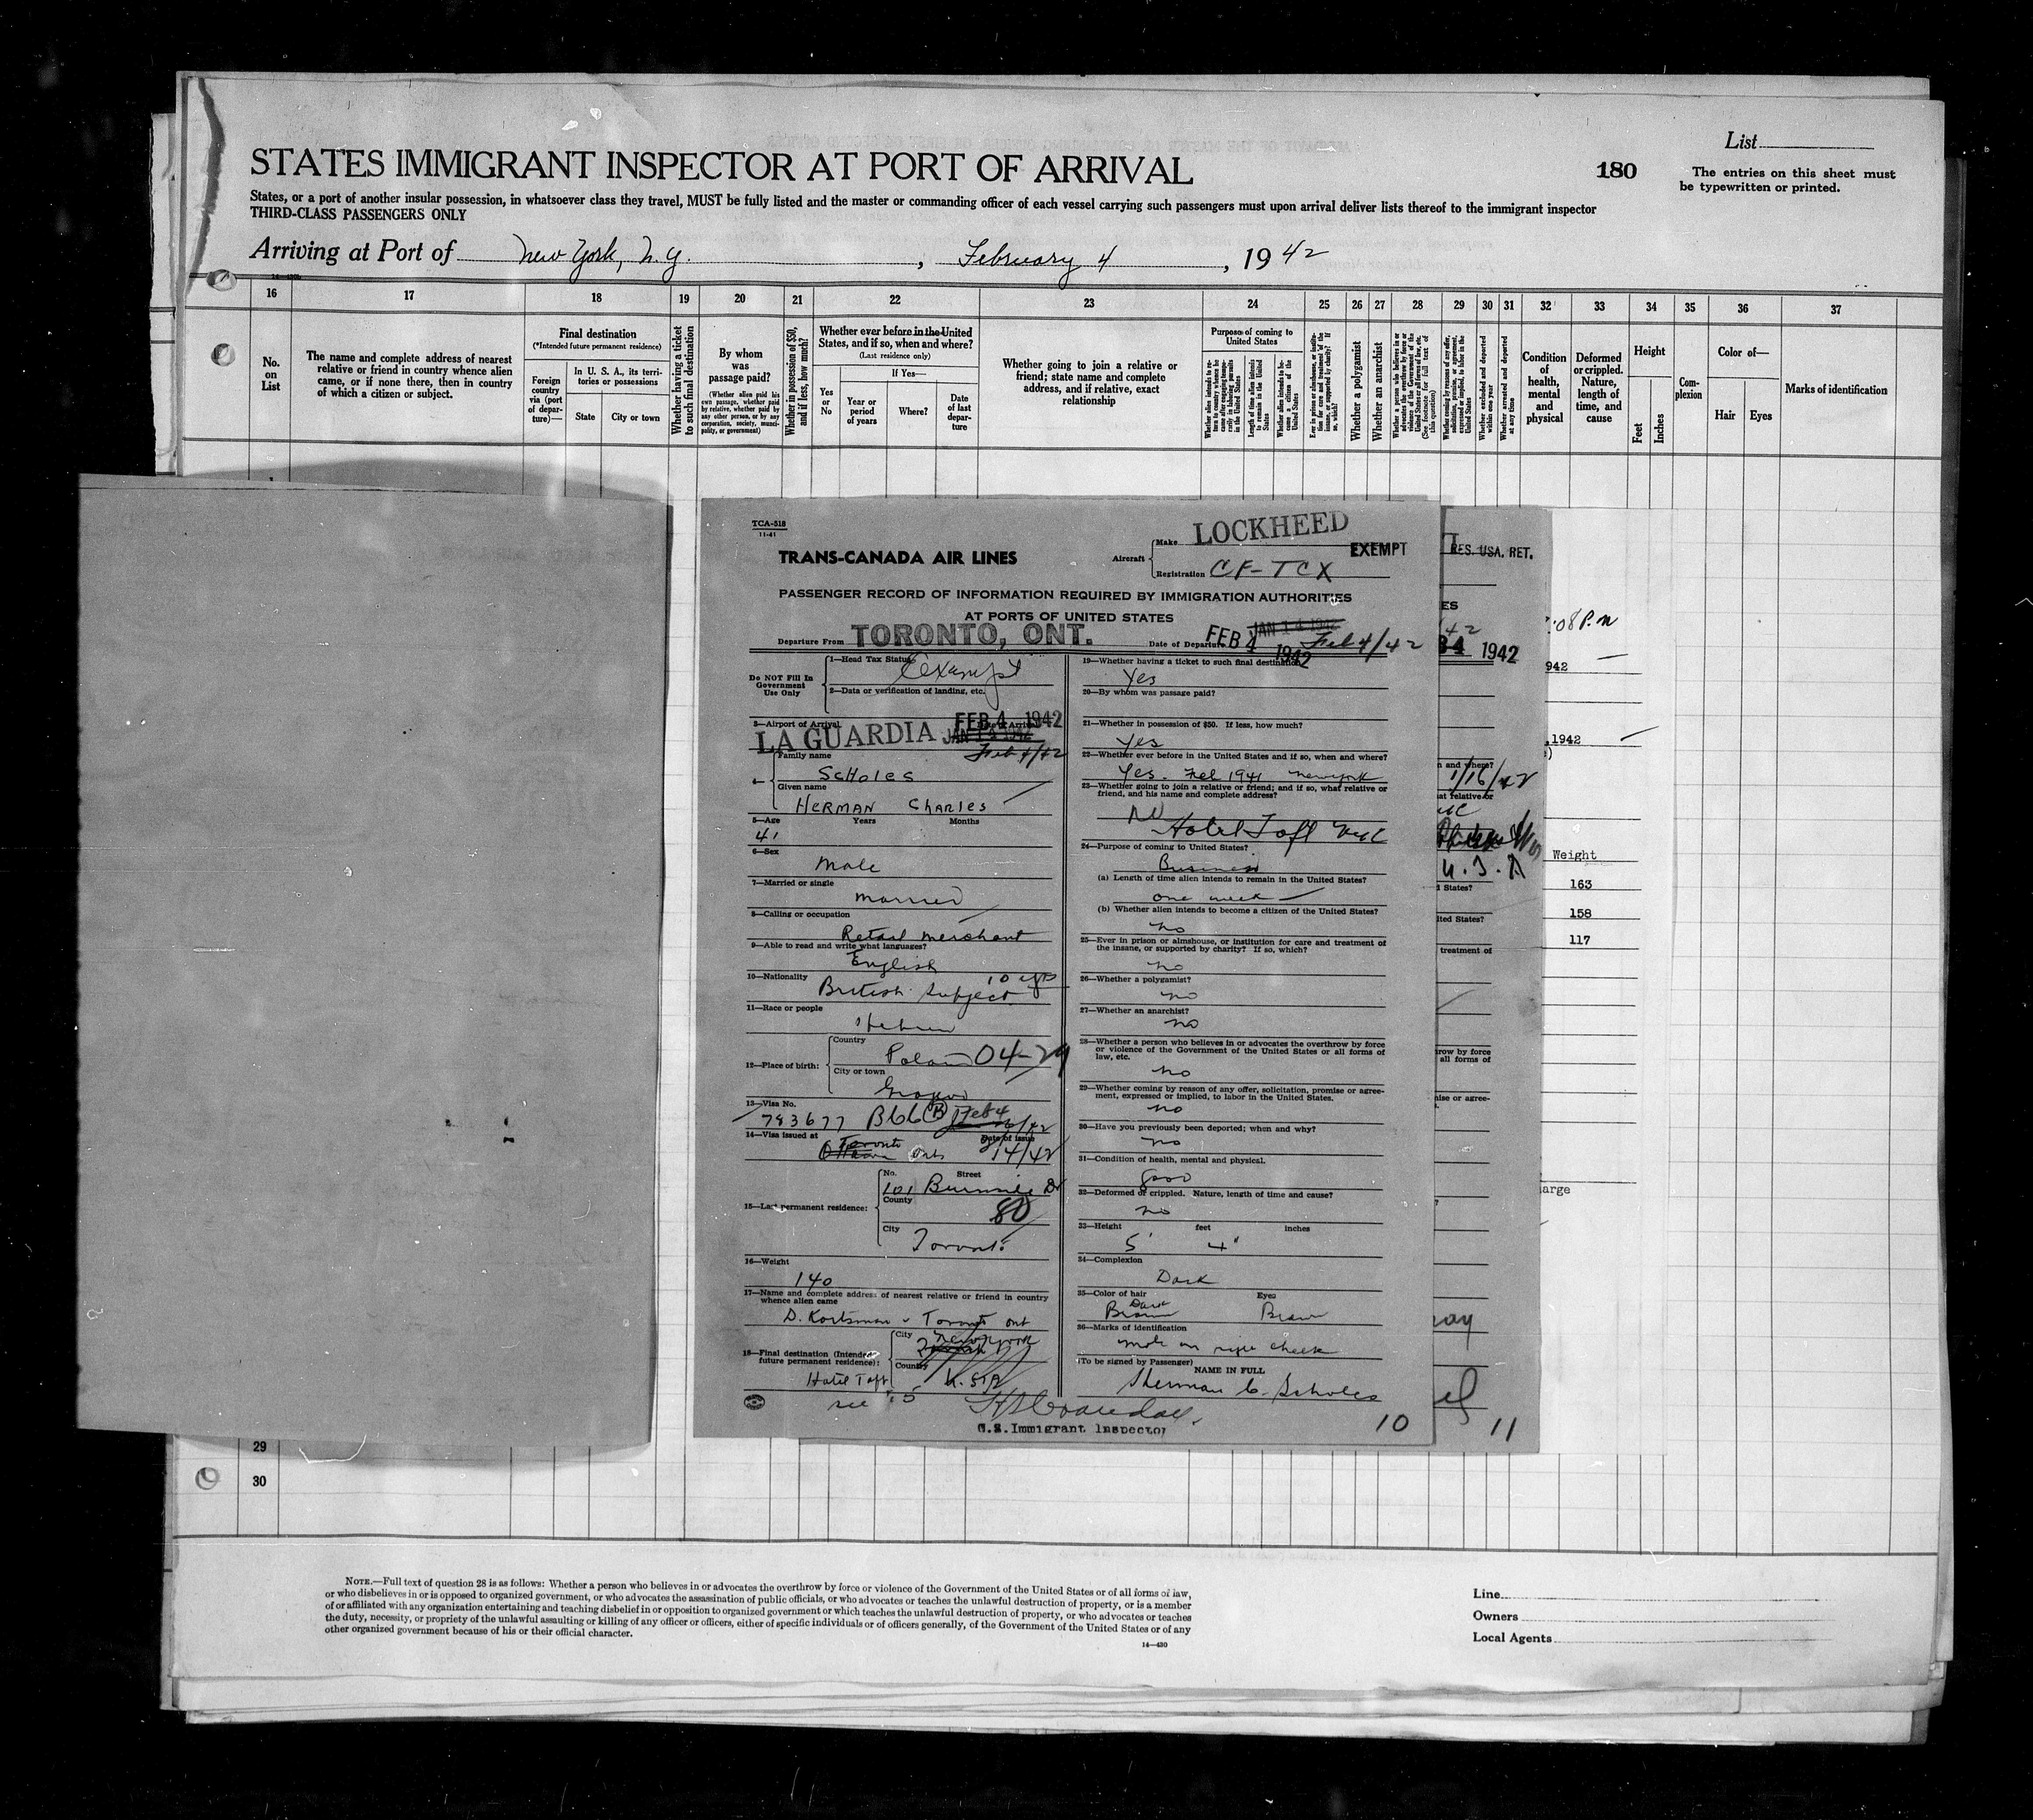 List
STATES IMMIGRANT INSPECTOR AT PORT OF ARRIVAL
180
The entries on this sheet must
be typewritten or printed.
States, or a port of another insular possession, in whatsoever class they travel, MUST be fully listed and the master or commanding officer of each vessel carrying such passengers must upon arrival deliver lists thereof to the immigrant inspector
THIRD-CLASS PASSENGERS ONLY
Arriving at Port of New York, N.Y., February 4, 1942
16 17 18 19 20 21 22 23 24 25 26 27 28 29 30 31 32 33 34 35 36 37
No. on List
The name and complete address of nearest
relative or friend in country whence alien
came, or if none there, then in country
of which a citizen or subject.
Final destination
(*Intended future permanent residence)
Foreign country via (port of departure)—
In U. S. A., its territories or possessions
State
City or town
Whether having a ticket to such final destination
By whom was passage paid?
(Whether alien paid his own passage, whether paid by relative, whether paid by any other person, or by any corporation, society, municipality, or government)
Whether in possession of $50, and if less, how much?
Whether ever before in the United
States, and if so, when and where?
(Last residence only)
Yes or No
If Yes—
Year or period of years
Where?
Date of last departure
Whether going to join a relative or
friend; state name and complete
address, and if relative, exact
relationship
Purpose of coming to
United States
Whether a polygamist
Whether an anarchist
Condition of health, mental and physical
Deformed or crippled. Nature, length of time, and cause
Height
Feet
Inches
Complexion
Color of—
Hair
Eyes
Marks of identification
TCA-518
11-41
TRANS-CANADA AIR LINES
Aircraft
Make LOCKHEED
EXEMPT
Registration CF-TCX
PASSENGER RECORD OF INFORMATION REQUIRED BY IMMIGRATION AUTHORITIES
AT PORTS OF UNITED STATES
Departure From TORONTO, ONT.
Date of Departure FEB 4 1942 JAN 14 1942 Feb 4/42
Do NOT Fill In
Government
Use Only
1—Head Tax Status Exempt
2—Data or verification of landing, etc.
3—Airport of Arrival LA GUARDIA
Date of Arrival FEB 4 1942 JAN 14 1942 Feb 4/42
4—
Family name
Scholes
Given name
HERMAN Charles
5—Age Years Months
41
6—Sex
Male
7—Married or single
Married
8—Calling or occupation
Retail merchant
9—Able to read and write what languages?
English
10—Nationality
British Subject 10 yrs
11—Race or people
Hebrew
12—Place of birth:
Country
Poland 04-29
City or town
13—Visa No.
783677 B66 (B) Feb 4
14—Visa issued at Date of issue
Toronto
Ottawa Ont
15—Last permanent residence:
No. Street
101 Burnside Dr
County
80
City
Toronto
16—Weight
140
17—Name and complete address of nearest relative or friend in country
whence alien came
D. Kortsman - Toronto Ont
18—Final destination (Intended
future permanent residence):
City New York
County
Hotel Taft U.S.A.
see 15
U.S. Immigrant Inspector
19—Whether having a ticket to such final destination
Yes
20—By whom was passage paid?
21—Whether in possession of $50. If less, how much?
Yes
22—Whether ever before in the United States and if so, when and where?
Yes. Feb 1941 New York
23—Whether going to join a relative or friend; and if so, what relative or
friend, and his name and complete address?
No
Hotel Taft NYC
24—Purpose of coming to United States?
Business
(a) Length of time alien intends to remain in the United States?
one week
(b) Whether alien intends to become a citizen of the United States?
no
25—Ever in prison or almshouse, or institution for care and treatment of
the insane, or supported by charity? If so, which?
no
26—Whether a polygamist?
no
27—Whether an anarchist?
no
28—Whether a person who believes in or advocates the overthrow by force
or violence of the Government of the United States or all forms of
law, etc.
no
29—Whether coming by reason of any offer, solicitation, promise or agree-
ment, expressed or implied, to labor in the United States.
no
30—Have you previously been deported; when and why?
no
31—Condition of health, mental and physical.
good
32—Deformed or crippled. Nature, length of time and cause?
no
33—Height feet inches
5' 4"
34—Complexion
Dark
35—Color of hair Eyes
Dark
Brown Brown
36—Marks of identification
mole on right cheek
(To be signed by Passenger)
NAME IN FULL
Herman C. Scholes
10
RES. USA. RET.
1942
1/16/42
U.S.A
11
:08 P.M
942
, 1942
Weight
163
158
117
29
30
NOTE.—Full text of question 28 is as follows: Whether a person who believes in or advocates the overthrow by force or violence of the Government of the United States or of all forms of law,
or who disbelieves in or is opposed to organized government, or who advocates the assassination of public officials, or who advocates or teaches the unlawful destruction of property, or is a member
of or affiliated with any organization entertaining and teaching disbelief in or opposition to organized government or which teaches the unlawful destruction of property, or who advocates or teaches
the duty, necessity, or propriety of the unlawful assaulting or killing of any officer or officers, either of specific individuals or of officers generally, of the Government of the United States or of any
other organized government because of his or their official character.
14—430
Line
Owners
Local Agents